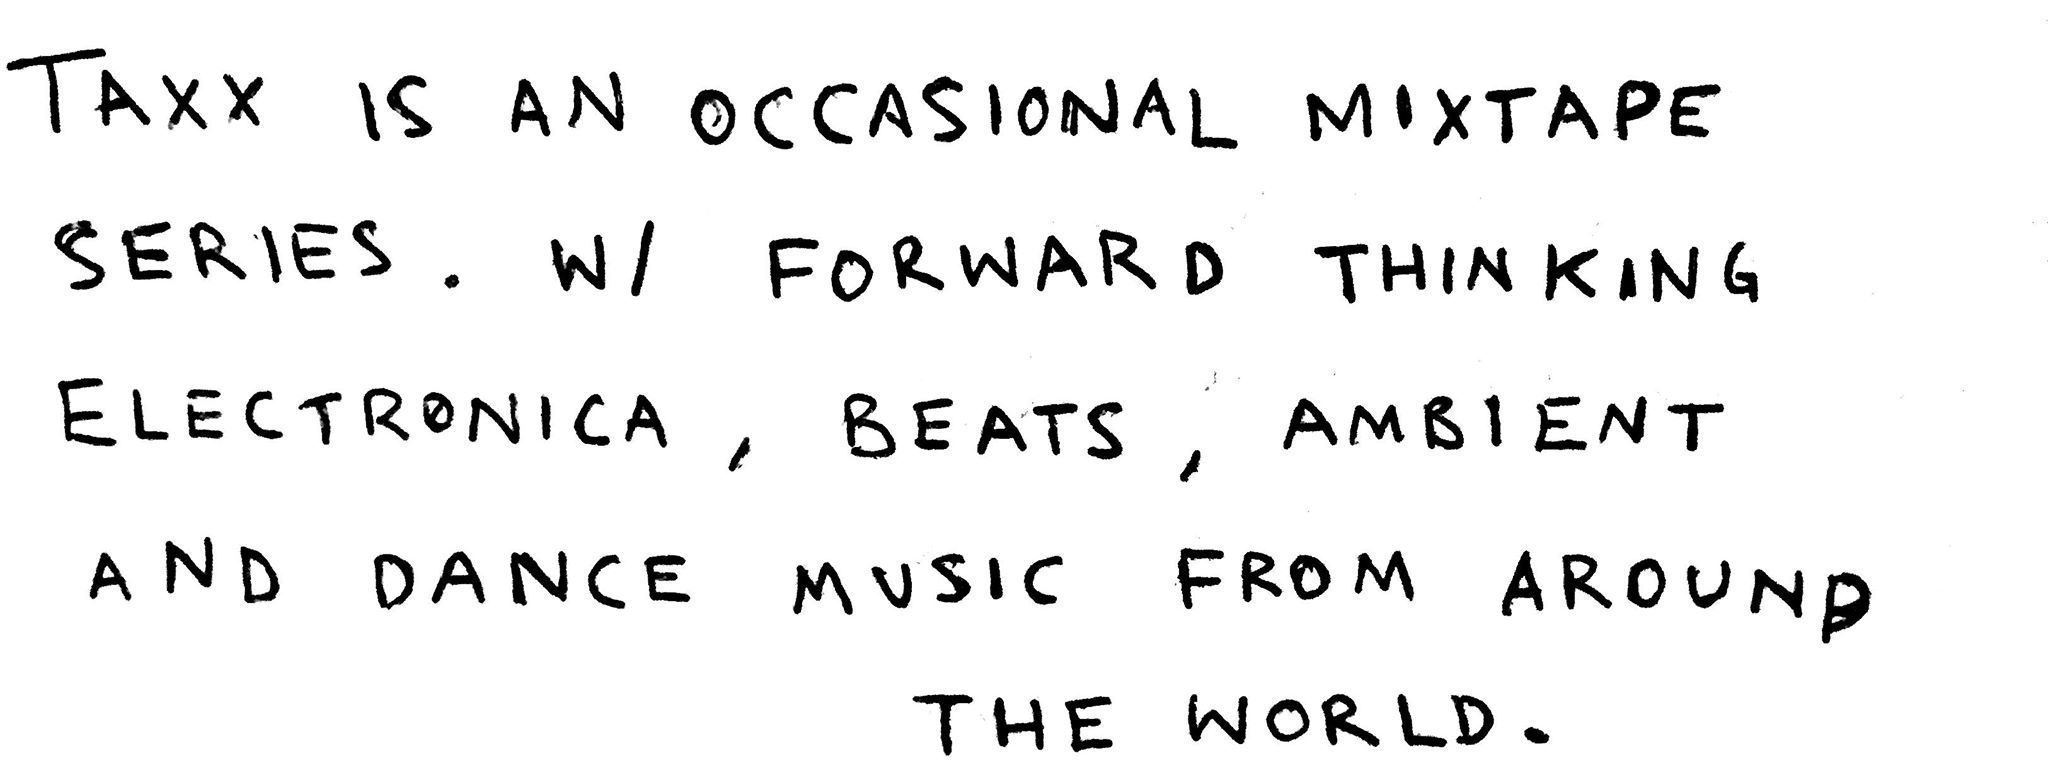 TAXX IS AN OCCASIONAL MIXTAPE
SERIES. W/ FORWARD THINKING
ELECTRONICA, BEATS, AMBIENT
AND DANCE MUSIC FROM AROUND
THE WORLD.